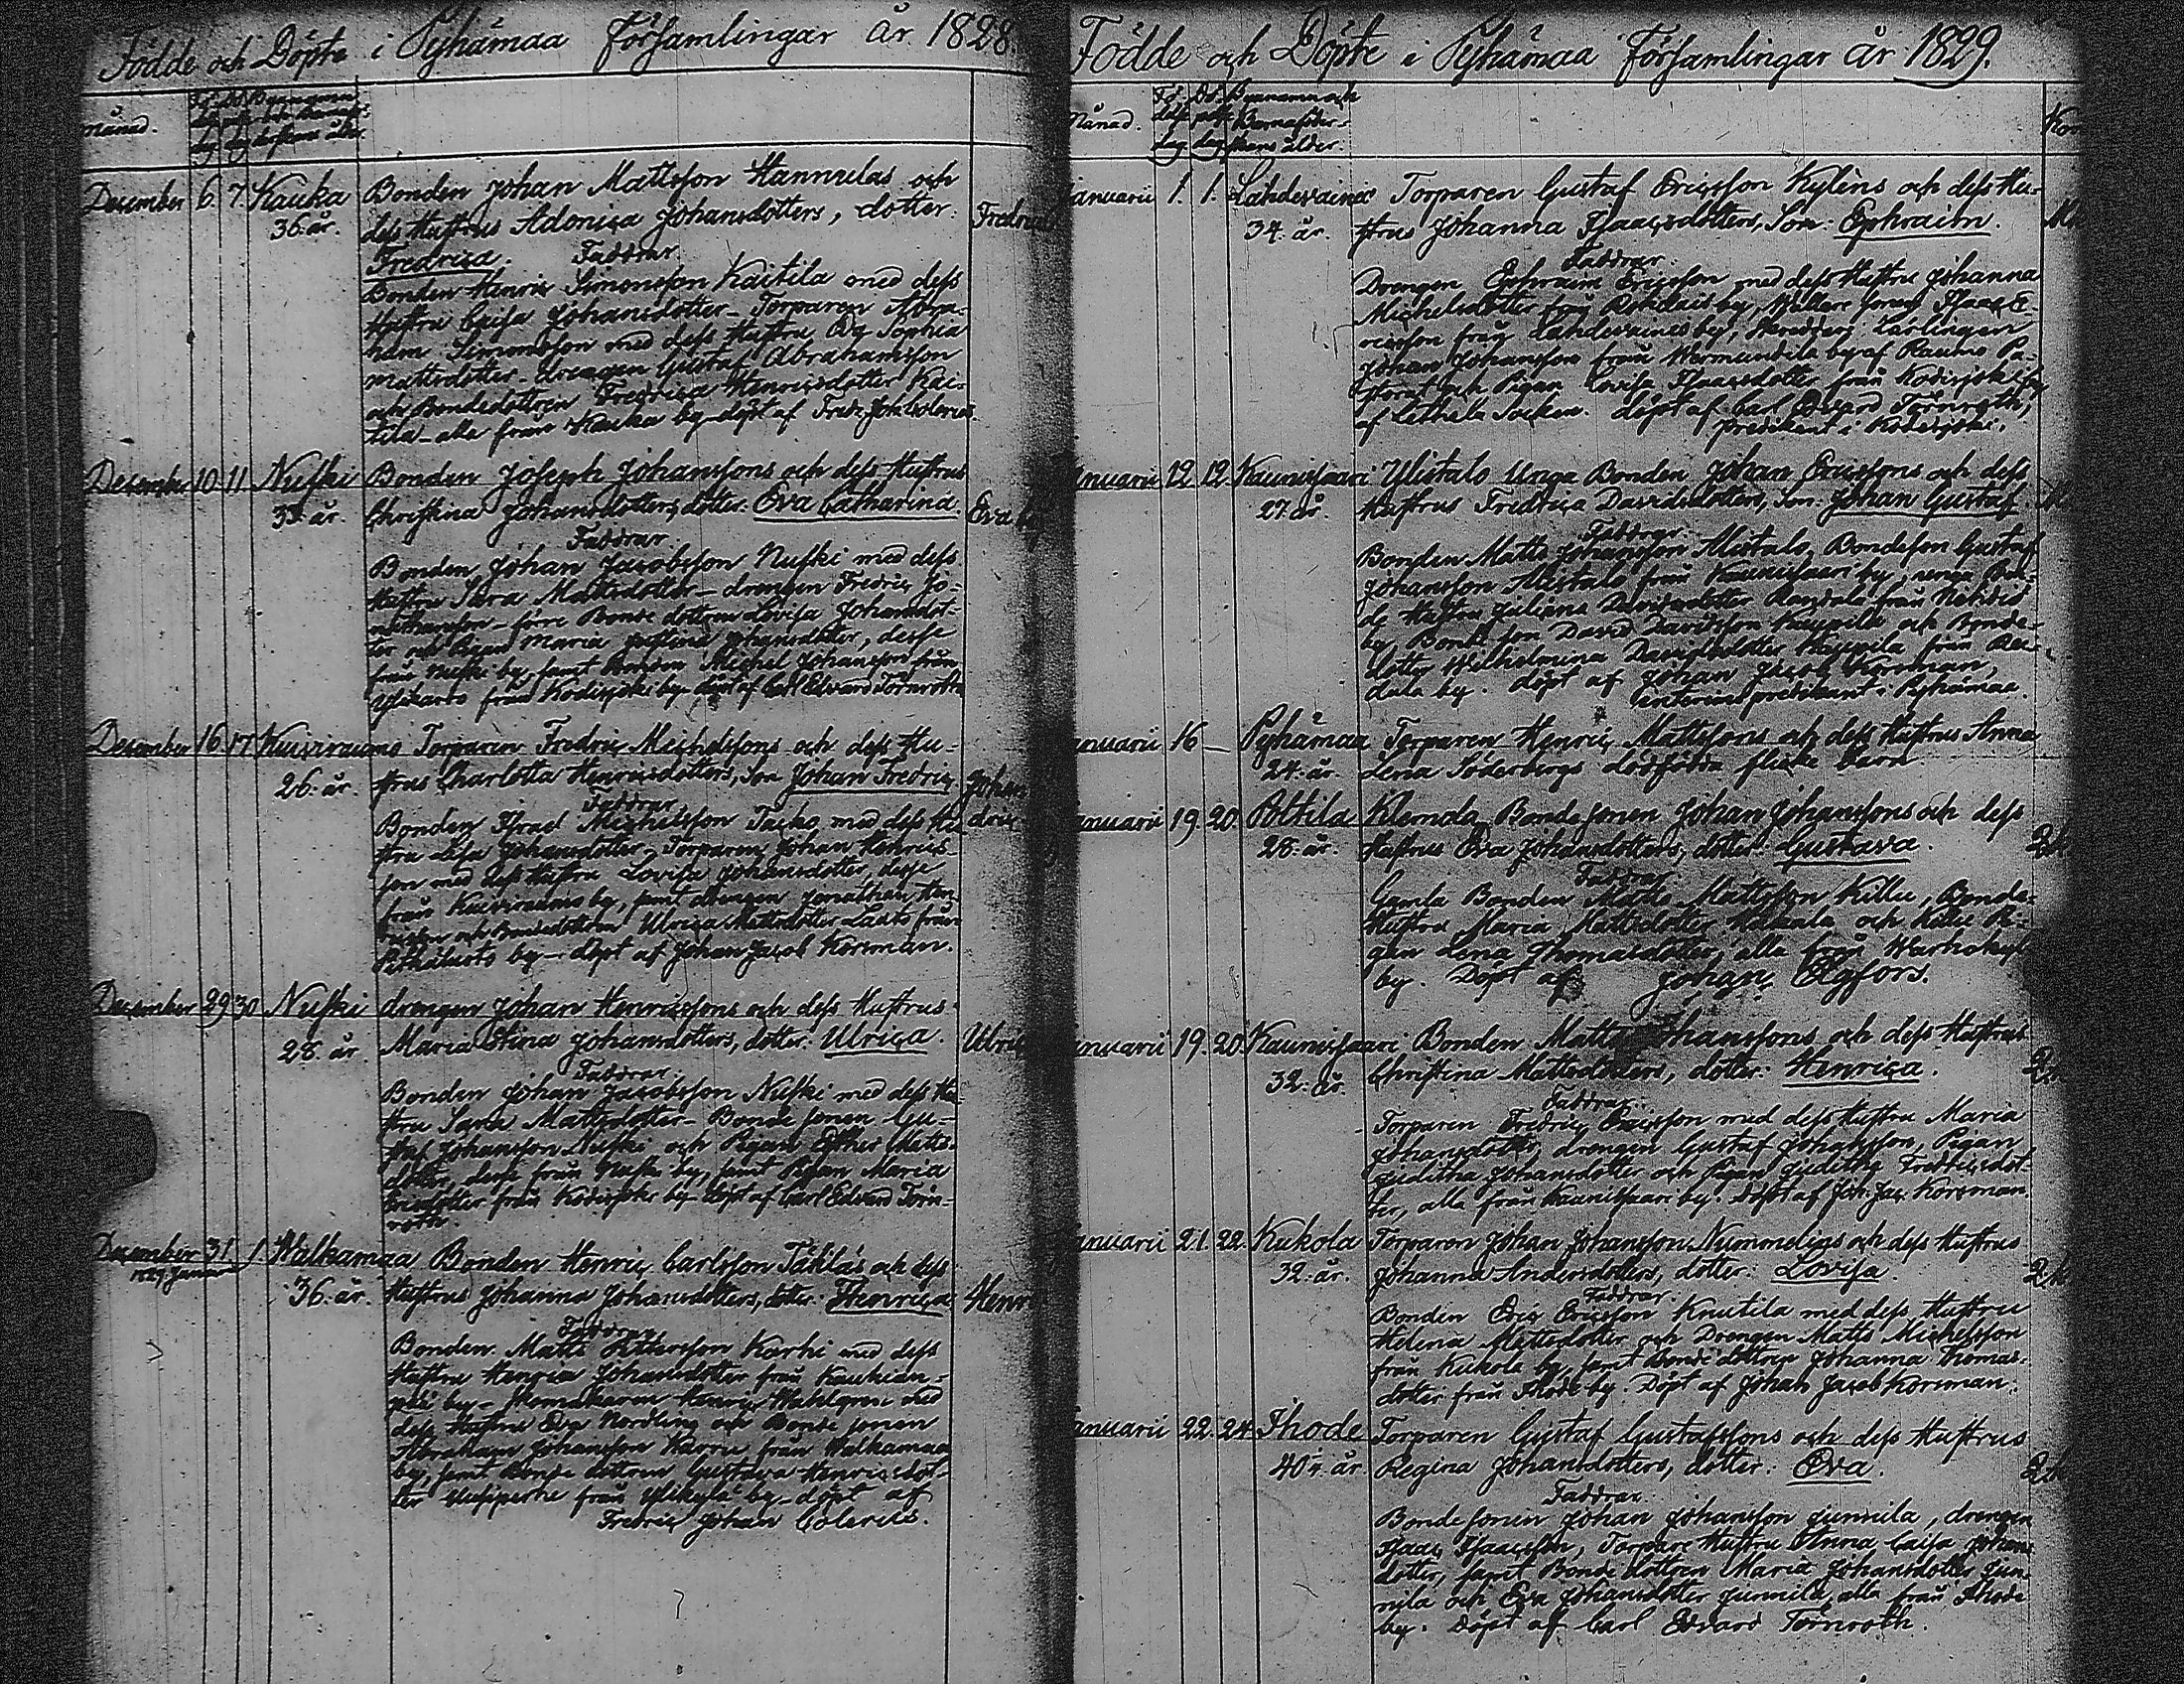 Födde och Döpte i Pyhämaa församlingar år 1828.
månad.
December 6. 7. Kauka Bonden Johan Mattsson Hannulas och
36. år. dess Hustrus Adorica Johansdotters, dotter:
Fredrica. Faddrar.
Bonden Henric Simonsson Kaitila med dess
Hustru Caisa Johansdotter - Torparen Abra-
ham Simonsson med dess Hustru Sophia
Mattsdotter - drengen Gustaf Abrahamsson
och Bondedottren Fredrica Henricsdotter Kai-
tila - alla från Kauka by - döpt af Fredr. Joh. Colerus.
December 10. 11. Nuski Bonden Joseph Johanssons och dess Hustrus
år. Christina Johansdotters, dotter: Eva Catharina. Eva
Faddrar.
Bonden Johan Jacobsson Nuski med dess
Hustru Sara Mattsdotter - drengen Fredric Jo-
nathansson - förre Bonde dottren Lovisa Johansdot-
ter och Pigan Maria Johansdotter, desse
från Nuski by, samt Michel Johansson från
från Kodisjoki by - döpt af Carl Edvard Törnroth
December 16. 17. Kuivirauma Torparen Fredric Michelssons och dess Hu-
26. år. strus Charlotta Henricsdotters, Son Johan Fredric Johan
Faddrar.
Bonden Israel Michelsson med dess Hu-
stru Lisa Johansdotter - Torparen Johan Henrics-
son med dess Hustru Lovisa Johansdotter, desse
från Kuivirauma by, samt drengen Jonathan Hen-
ricsson och Bondedottren Ulrica Mattsdotter från
by - döpt af Johan Jacob Korsman.
December 29. 30. Nuski drengen Johan Henricssons och dess Hustrus
28. år. Maria Stina Johansdotters, dotter: Ulrica. Ulric
Faddrar.
Bonden Johan Jacobsson Nuski med dess Hu-
stru Sara Mattsdotter - Bonde sonen Gu-
staf Johansson Nuski och Pigan Esther Matts-
dotter, desse från Nuski by, samt Pigan Maria
Ericsdotter från Kodisjoki by - döpt af Carl Edvard Törn-
roth.
December 31. 1. Walkamaa Bonden Henric Carlsson Täkläs och dess
1829. Januari
36. år. Hustrus Johanna Johansdotters, dotter: Henrica Henr
Faddrar.
Bonden Matts Karhi med dess
Hustru Henrica Johansdotter från Kaukian-
pää by - Henric Wahlgren med
dess Hustru Eva Nordling och Bonde sonen
Abraham Johansson Karru från Walkamaa
by, samt Bonde dottren Gustava Henricsdot-
ter från Ylikylä by - döpt af
Fredric Johan Colerus.
Födde och Döpte i Pyhämaa församlingar år 1829.
Månad. Fö- delse dag Dö- pelse dag Bynamn och Barnaföder- skans ålder.
Januarii 1. 1. Lahdevainio Torparen Gustaf Ericsson Kyléns och dess Hu-
34. år. strus Johanna Isaacsdotters, Son: Ephraim.
Faddrar.
Drengen Ephraim Ericsson med dess Hustru Johanna
Michelsdotter från by, Isaac E-
ricsson från Lahdevainio by, Lärlingen
Johan Johansson från Wermuntila by af Raumo Pa-
storat och Pigan Lovisa Isaacsdotter från Kodisjoki by
af Lethala Socken. döpt af Carl Edvard Törnroth,
predikant i Kodisjoki.
Januarii 12. 12. Kaunissaari Ylistalo unga Bonden Johan Ericssons och dess
27. år. Hustrus Fredrica Davidsdotters, Son: Johan Gustaf
Faddrar.
Bonden Matts Johansson Alistalo, Bondeson Gustaf
Johansson Alistalo från Kaunissaari by, unga Bon-
de Hustru Juliana Davidsdotter från
by Bonde son David Davidsson Kauppila och Bonde-
dotter Wilhelmina Davidsdotter Kauppila från
by. döpt af Johan Jacob Korsman,
interims predikant i Pyhämaa.
Januarii 16 — Pyhämaa Torparen Henric Mattssons och dess Hustrus Anna
24. år. Lena Söderbergs dödfödda flicke barn
Januarii 19. 20. Poltila Klemola Bonde sonen Johan Johanssons och dess
28. år. Hustrus Eva Johansdotters, dotter: Gustava.
Faddrar.
Gamla Bonden Mats Mattsson Killu, Bonde-
Hustru Maria Mattsdotter och Killu Pi-
gan Lena Thomasdotter, alla från
by. Döpt af Johan Elgfors.
Januarii 19. 20. Kaunissaari Bonden Matts Johanssons och dess Hustrus
32. år. Christina Mattsdotters, dotter: Henrica.
Faddrar.
Torparen Fredric Ericsson med dess Hustru Maria
Johansdotter, drengen Gustaf Johansson, Pigan
Juditha Johansdotter och Pigan Juditha Fredricsdot-
ter, alla från Kaunissaari by. döpt af Joh. Jac. Korsman.
Januarii 21. 22. Kukola Torparen Johan Johansson Nummelins och dess Hustrus
32. år. Johanna Andersdotters, dotter: Lovisa.
Faddrar.
Bonden Eric Ericsson Knutila med dess Hustru
Helena Mattsdotter och Drengen Matts Michelsson
från Kukola by, samt Bonde dottren Johanna Thomas-
dotter från Ihode by. Döpt af Johan Jacob Korsman.
Januarii 22. 24. Ihode Torparen Gustaf Gustafssons och dess Hustrus
40. år. Regina Johansdotters, dotter: Eva.
Faddrar.
Bonde sonen Johan Johansson Junnila, drengen
Isaac Isaacsson, Torpare Hustru Anna Caisa Johans-
dotter, samt Bonde dottren Maria Johansdotter Jun-
nila och Eva Johansdotter Junnila, alla från Ihode
by. Döpt af Carl Edvard Törnroth.